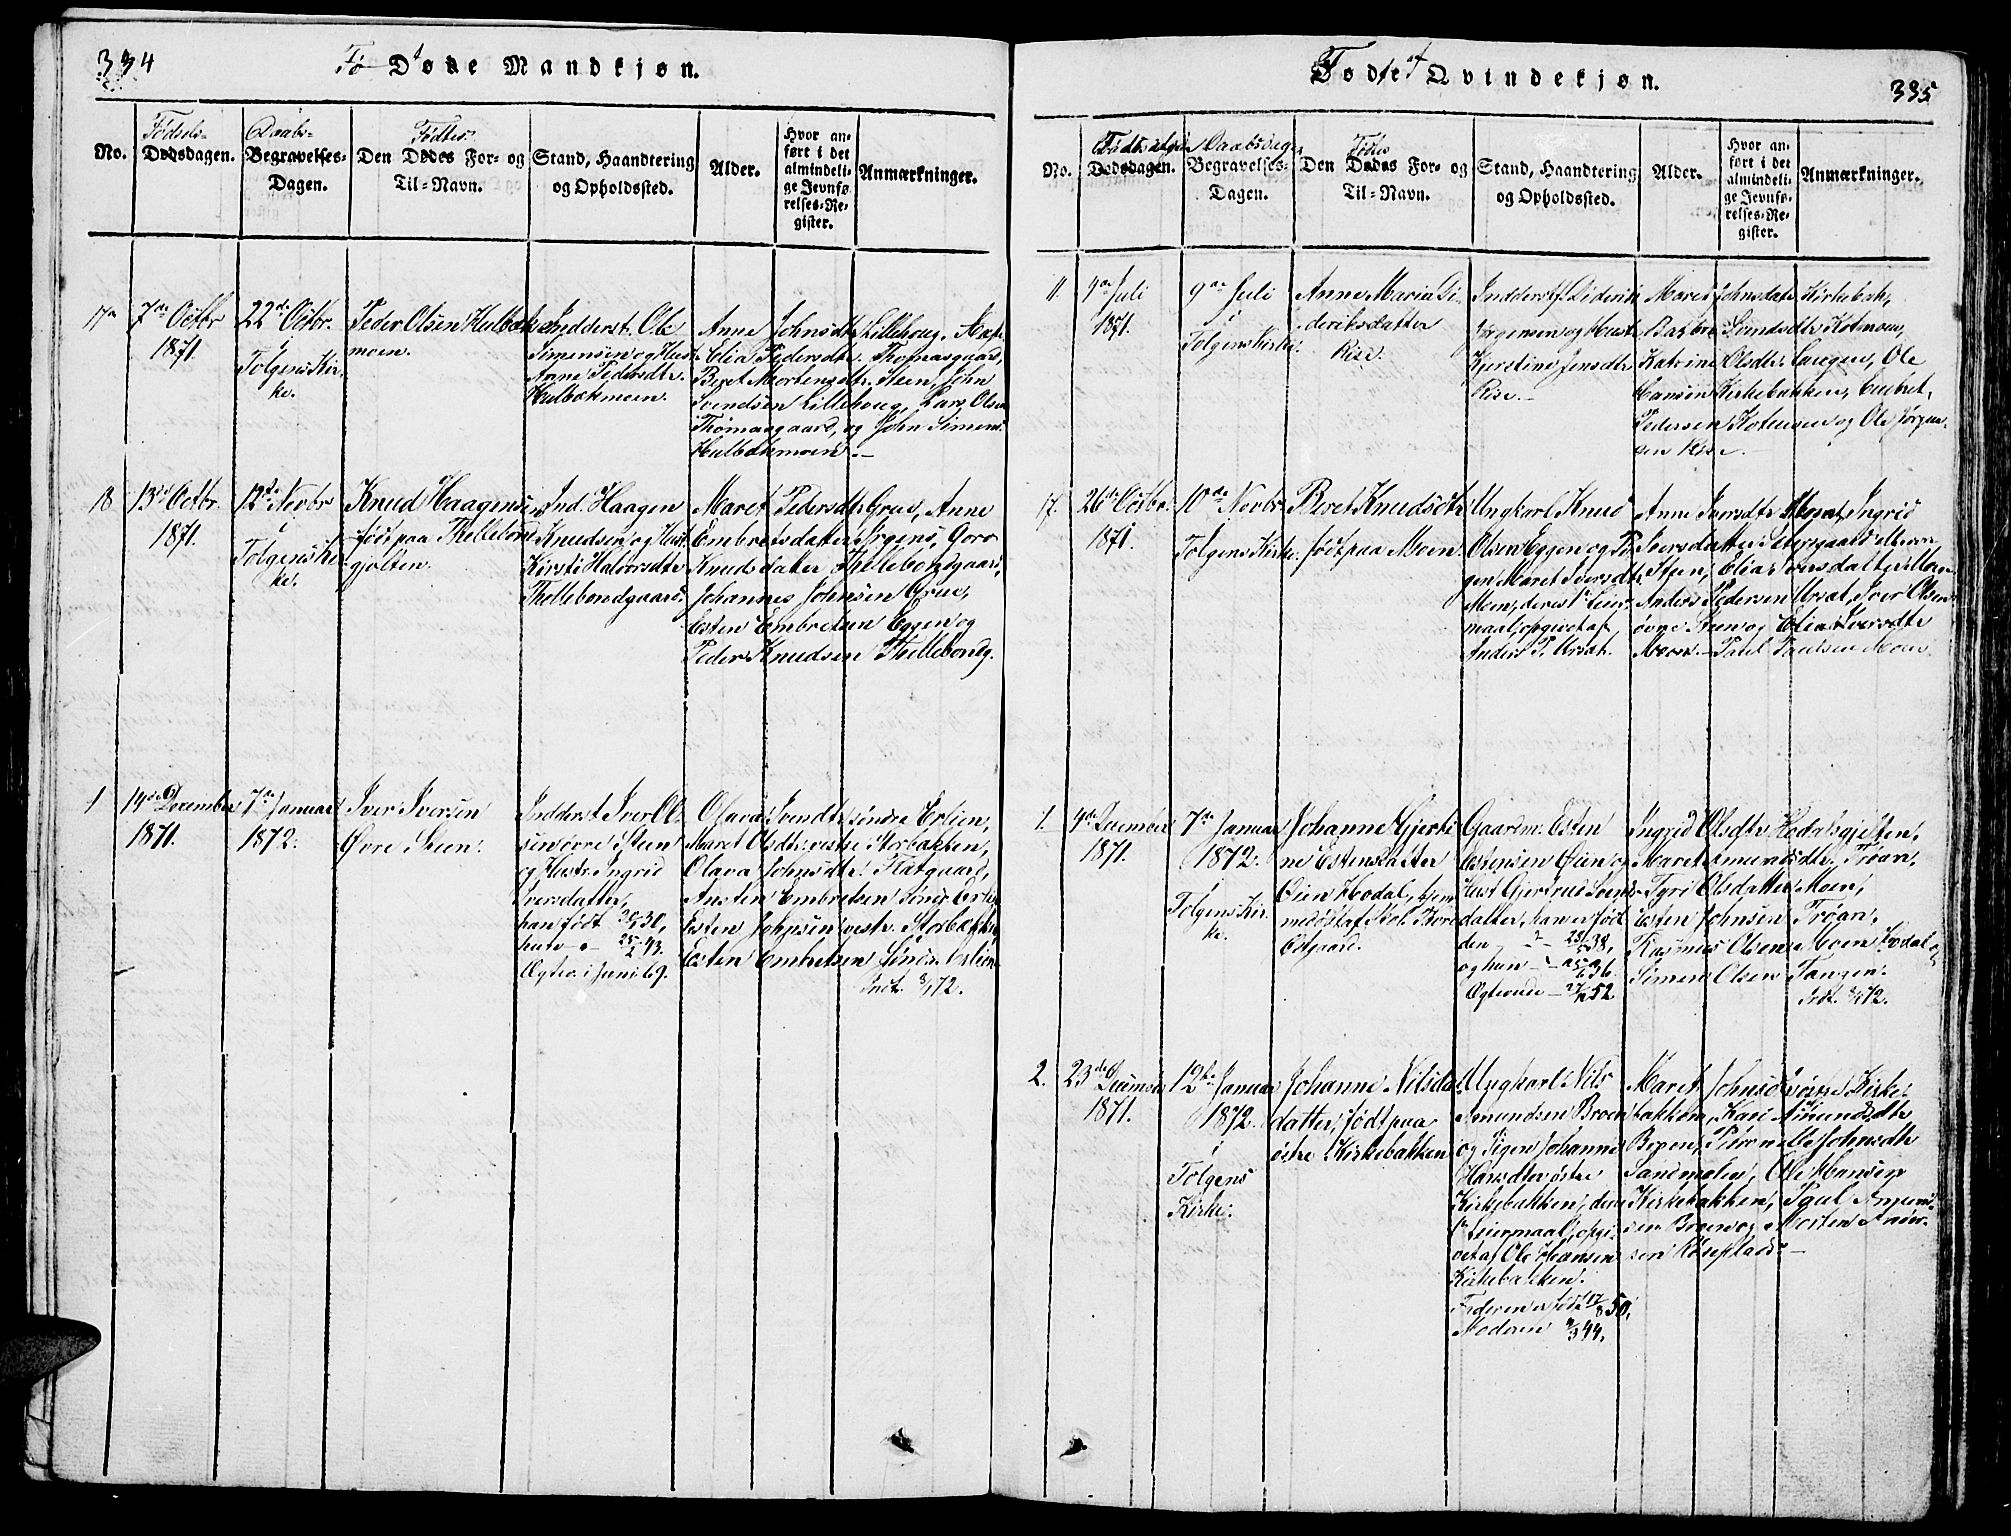 334
Fødte Mandkjøn.
No.
Fødsels-
Dødsdagen.
Daabs-
Begravelses-
Dagen.
Fødtes
Den Dødes For- og
Til-Navn.
Stand, Haandtering
og Opholdssted.
Alder.
Hvor an-
ført i det
almindeli-
ge Jevnfø-
relses-Re-
gister.
Anmærkninger.
17
7de Octbr
1871.
22de Octbr.
i
Tolgens Kir-
ke.
Peder Olsen Hulbæk-
moen.
Inderst. Ole
Simensen og Hust.
Anne Pedersdtr.
Hulbækmoen.
Anne Johnsdtr Lillehoug,
Elia Pedersdtr. Thomasgaard,
Beret Mortensdtr. Steen, John
Svendsen Lillehoug, Lars Olsen
Thomasgaard, og John Simens.
Hulbækmoen.
18
13de Octbr.
1871.
12te Novbr
i
Tolgens Kir-
ke.
Knud Haagensen
født paa Thellebond-
gjølten.
Ind. Haagen
Knudsen og Hust.
Kirsti Halvorsdtr
Thellebondgaard.
Maret Pedersdtr Grue, Anne
Embretsdatter Ørgens, Goro
Knudsdatter Thellebondgaard,
Johannes Johnsen Grue,
Esten Embretsen Eggen og
Peder Knudsen Thellebondg.
1
14de December
1871.
7de Januar
1872.
Iver Iversen
Øvre Steen.
Inderst Iver Ol-
sen øvre Steen
og Hustr. Ingrid
Iversdatter,
han født 30,
hun 43.
Ægtev. i Juni 69.
Olava Svendtr søndre Erlien,
Maret Olsdtr. vestre Storbakken,
Olava Johnsdtr. Flatgaard,
Austen Embretsen Søndr. Erlien
Esten Johnsen vestr. Storbakken,
Esten Embretsen Søndr. Erlien
Indt. 8/1 72.
Fødte af Qvindekjøn.
335
No.
Fødselsdagen
Dødsdagen.
Daabsdagen
Begravelses-
Dagen.
Fødtes
Den Dødes For- og
Til-Navn.
Stand, Haandtering
og Opholdssted.
Alder.
Hvor an-
ført i det
almindeli-
ge Jevnfø-
relses-Re-
gister.
Anmærkninger.
11.
4de Juli
1871.
9de Juli
i
Tolgens Kirke.
Anne Maria Di-
deriksdatter
Rise.
Indderst. Diderik
Jørgensen og Hust.
Kjerstine Jensdtr
Rise.
Mares Johnsdatr Kirkebak,
Barbro Samdsdtr Kotmoen,
Katrine Olsdtr. Laugen, Ole
Hansen Kirkebakken, Embret
Pedersen Kotmoen og Ole Jørgen-
sen Rise.
17.
26de Octbr.
1871.
10de Novbr
Tolgens Kirke.
Beret Knudsdtr
født paa Moen.
Ungkarl Knud
Olsen Eggen og Pi-
gen Maret Iversdtr
Moen, deres 1ste Leier-
maal, opgivet af
Anders P. Ursat.
Anne Iversdtr Ursat, Ingrid
Iversdatter
Steen, Elia Iversdatter Moen
Anders Pedersen Ursat, Iver Olsen
øvre Steen og Elia Iversdtr
Moen. Paul Paulsen Moen
1.
4de December
1871.
7de Januar
1872.
i
Tolgens Kir-
ke.
Johanne Gjerti-
ne Estensdatter
Øien Hodal, hjem-
medøbt af
Østgaard.
Gaardm. Esten
Estensen Øien og
Hust Gjertrud Svends-
datter, han er født
den 38,
og hun 36
Ægteviede 52
Ingrid Olsdtr Hodalsgjelten,
Maret Amundsdtr. Trøan,
Tyri Olsdatter Moen,
Esten Johnsen Trøan,
Rasmus Olsen Moen Hodal og
Simen Olsen Tangen.
Indt. 8/1 72.
2.
23de December
1871.
12te Januar
1872.
i
Tolgens
Kirke.
Johanne Nilsda-
datter, født paa
østre Kirkebakken
Ungkarl Nils
Amundsen Broen
og Pigen Johanne
Hansdtr østre
Kirkebakken, deres
1ste Leiermaal, opgi-
vet af Ole Hansen
Kirkebakken.
Faderen er født 17/8 50,
Moderen 44.
Maret Johnsd østre Kirke-
bakken, Kari Amundsdtr
Broen, Pernille Johnsdtr
Sandmælen, Ole Hansen
Kirkebakken, Paul Amund-
sen Broen og Morten Ander-
sen Røseplads.